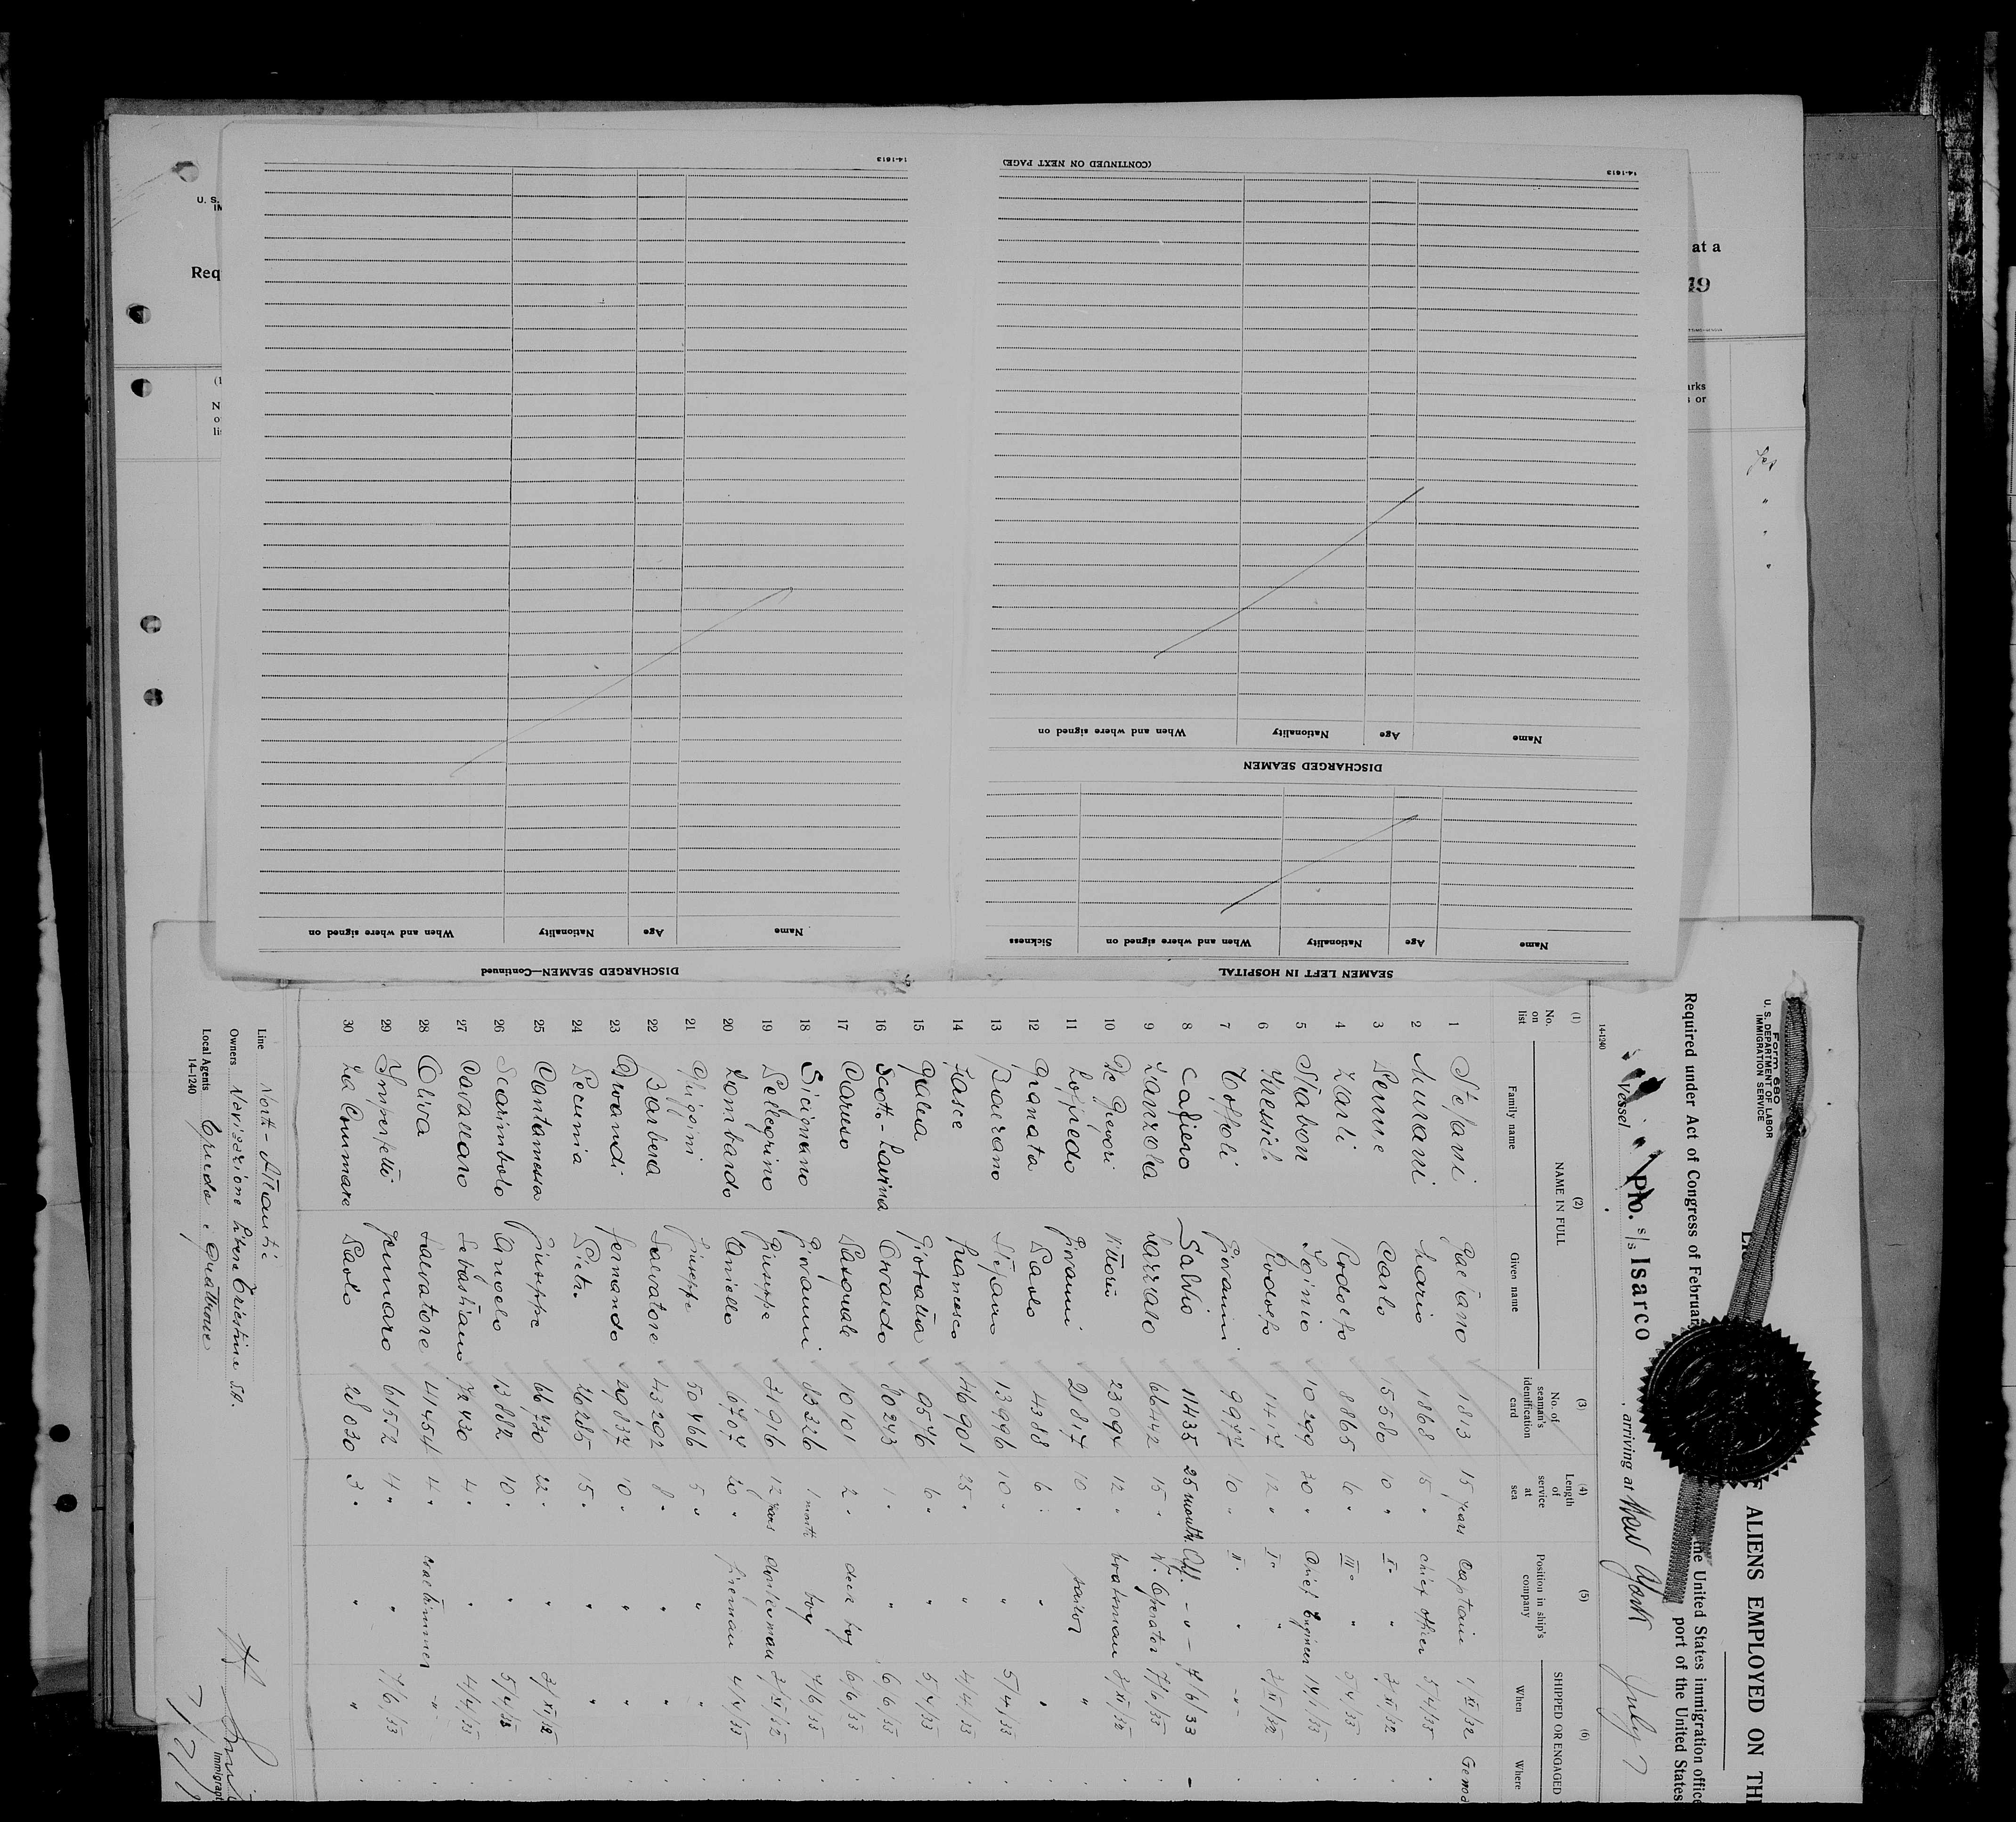 14-1613
(CONTINUED ON NEXT PAGE)
14-1613
SEAMEN LEFT IN HOSPITAL
Name Age Nationality When and where signed on Sickness
DISCHARGED SEAMEN
Name Age Nationality When and where signed on
DISCHARGED SEAMEN—Continued
Name Age Nationality When and where signed on
U. S.
Req
at a
19
arks
s or
Yes
"
"
"
Form 680
U. S. DEPARTMENT OF LABOR
IMMIGRATION SERVICE
ALIENS EMPLOYED ON TH
Required under Act of Congress of Februar the United States immigration office
port of the United States
Vessel Pfo. s/s Isarco , arriving at New York July 7
14-1240
(1) (2) (3) (4) (5) (6)
No. on list NAME IN FULL No. of seaman's identification card Length of service at sea Position in ship's company SHIPPED OR ENGAGED
Family name Given name When Where
1 Stefani Gaetano 1813 15 years Captain 1/XI/32 Genoa
2 Murani Mario 1868 15 " chief officer 5/4/33 "
3 Penne Carlo 15580 10 " I° " 3/XI/32 "
4 Zarli Rodolfo 8865 6 " III° " 5/4/33 "
5 Stabon Iginio 10299 30 " Chief Engineer 14/1/33 "
6 Kressich Rodolfo 1417 12 " I° " 3/XI/32 "
7 Toffoli Giovanni 9977 10 " II° " -"- "
8 Cafiero Sabbio 11435 25 month. App. -"- 7/6/33 -
9 Lanzola Lazzaro 66442 15 " W. Operator 7/6/33 "
10 De Gregori Vittorio 23094 12 " boatsman 3/XI/32 "
11 Loffredo Giovanni 21817 10 " sailor " "
12 Granata Paolo 4388 6 " " " "
13 Baerano Stefano 13996 10 " " 5/4/33 "
14 Fasce Francesco 46901 25 " " 4/4/33 "
15 Galena 9546 6 " " 5/4/33 "
16 Scotto-Lavina Corrado 30243 1 " " 6/6/33 "
17 Caruso Pasquale 10101 2 " deck boy 6/6/33 "
18 Sicignano Giovanni 83326 1 month boy 7/6/33 "
19 Pellegrino Giuseppe 31916 12 years donkeyman 3/XI/32 "
20 Lombardo Daniello 6707 20 " fireman 4/4/33 "
21 Ghiggini Giuseppe 50466 5 " " " "
22 Barbera Salvatore 43202 8 " " " "
23 Orlandi Fernando 29837 10 " " " "
24 Pecunia Pietro 26285 15 " " " "
25 Cantamessa Giuseppe 66730 22 " " 3/XI/32 "
26 Scarimbolo Angelo 13882 10 " " 5/4/33 "
27 Cavallaro Sebastiano 72430 4 " " 4/4/33 "
28 Oliva Salvatore 41454 4 " coal trimmer -"- "
29 Imperfetti Gennaro 61552 4 " " 7/6/33 "
30 La Commare Paolo 28030 3 " " " "
Line North-Atlantic
Owners Navigazione Libera Triestina S.A.
Local Agents
14-1240
Immigrant